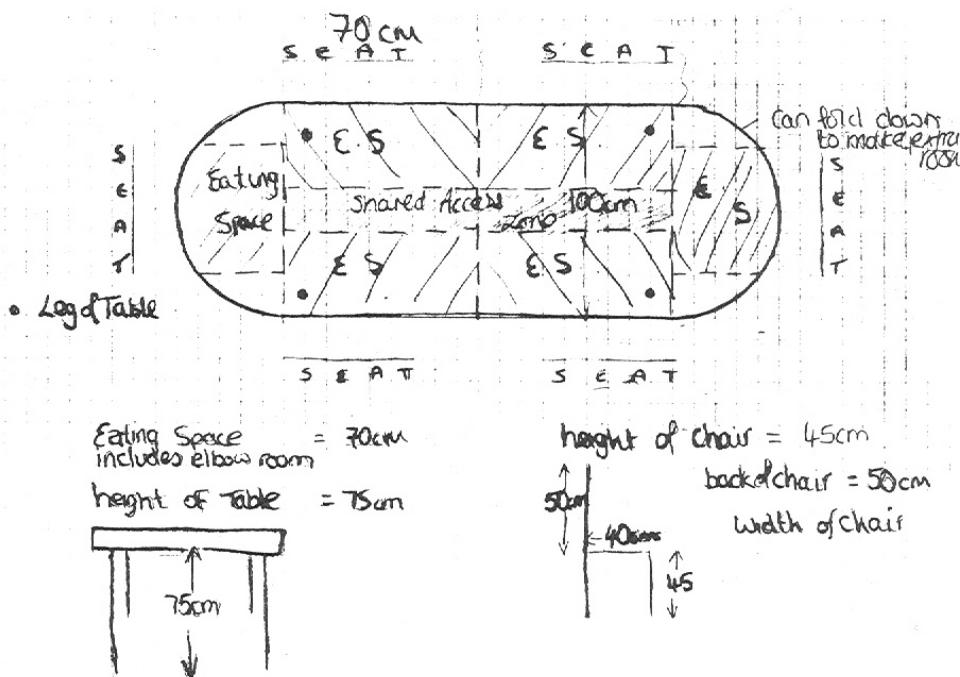 70cm
SEAT
SEAT
can fold down
to make extra
room
E.S
E.S
SEAT
Eating
Space
Shared Access
Zone
100cm
E
S
SEAT
E S
E.S
• Leg of Table
SEAT
SEAT
Eating Space = 70cm
includes elbow room
height of Table = 75cm
75cm
height of chair = 45cm
back of chair = 50cm
width of chair
50cm
40cm
45